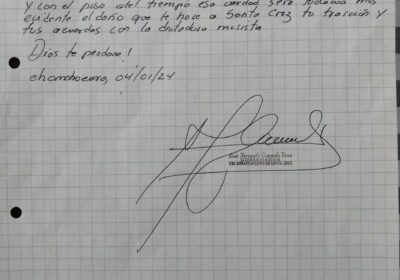 y con el paso del tiempo esa verdad será todavía más
evidente el daño que le hace a Santa Cruz tu traición y
tus acuerdos con la dictadura masista
Dios te perdone!
chonchocoro, 04/01/24
Luis Fernando Camacho Vaca
GOBERNADOR
DEL DEPARTAMENTO DE SANTA CRUZ